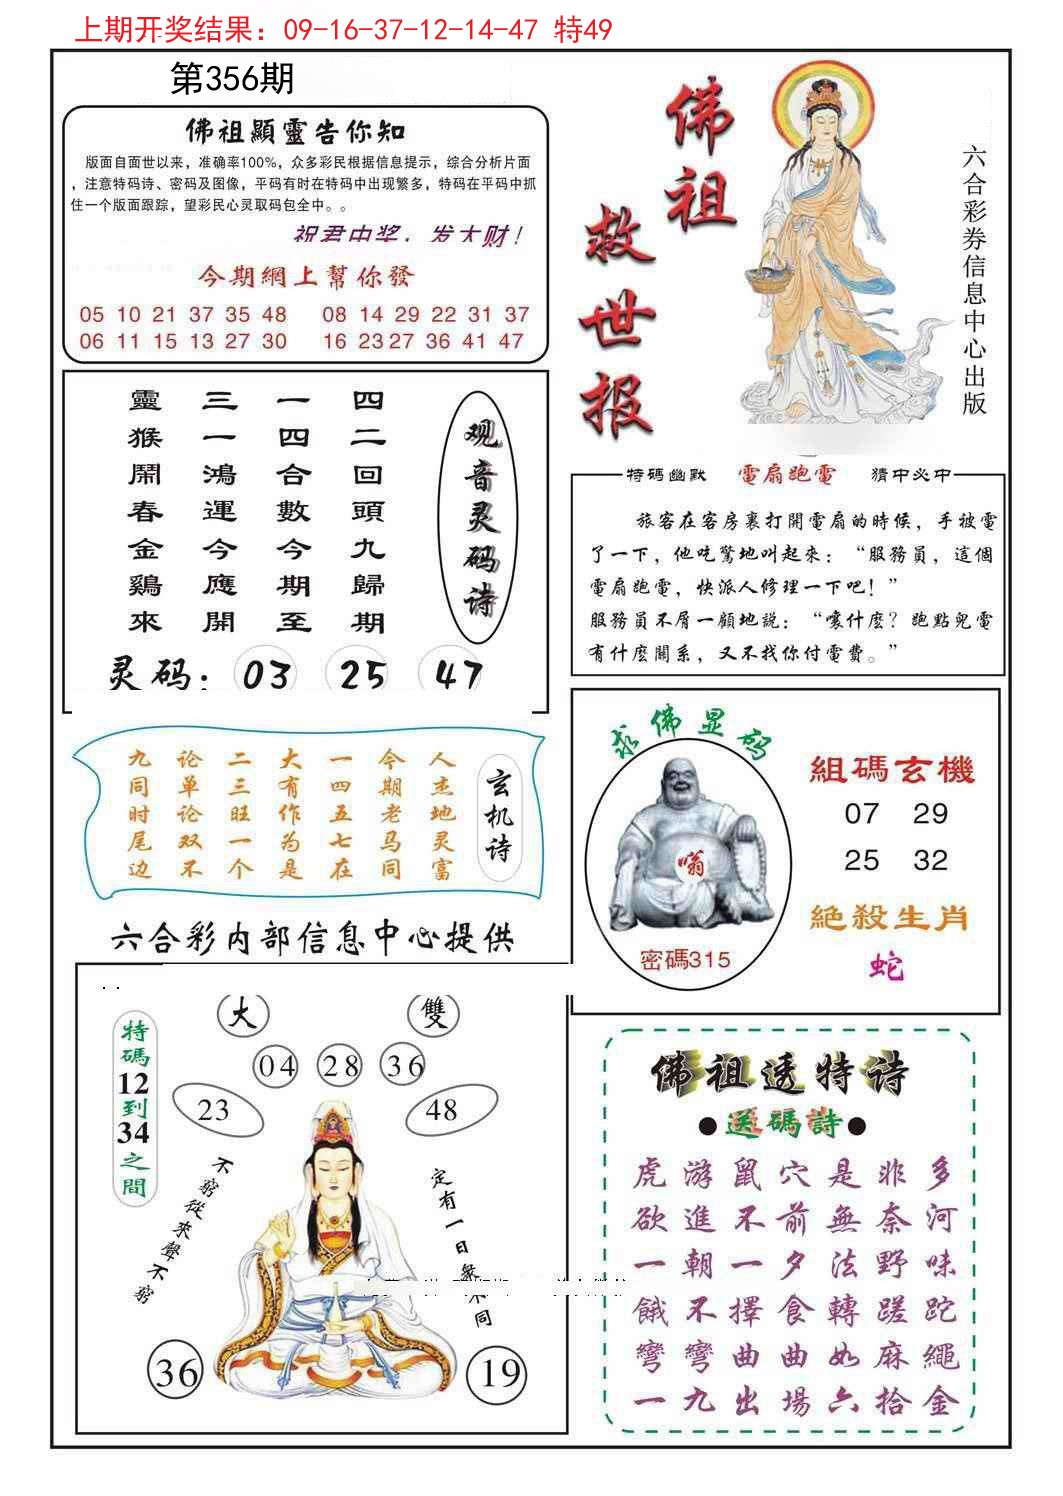 上期开奖结果：09-16-37-12-14-47 特49
第356期
佛祖顯靈告你知
版面自面世以来，准确率100%，众多彩民根据信息提示，综合分析片面
，注意特码诗、密码及图像，平码有时在特码中出现繁多，特码在平码中抓
住一个版面跟踪，望彩民心灵取码包全中。。
祝君中奖，发大财！
今期網上幫你發
05 10 21 37 35 48 08 14 29 22 31 37
06 11 15 13 27 30 16 23 27 36 41 47
佛祖
救世报
六合彩券信息中心出版
观音灵码诗
四二回頭九歸期
一四合數今期至
三一鴻運今應開
靈猴鬧春金鷄來
灵码：03 25 47
特碼幽默 電扇跑電 猜中必中
旅客在客房裏打開電扇的時候，手被電
了一下，他吃驚地叫起來：“服務員，這個
電扇跑電，快派人修理一下吧！”
服務員不屑一顧地説：“嚷什麽？跑點兒電
有什麽關系，又不找你付電費。”
玄机诗
人杰地灵富
今期老马同
一四五七在
大有作为是
二三旺一个
论单论双不
九同时尾边
求佛显码
密碼315
組碼玄機
07 29
25 32
絕殺生肖
蛇
六合彩内部信息中心提供
特碼12到34之間
大 雙
04 28 36
23 48
不窮從來聲不窮
36 19
佛祖透特诗
●送碼詩●
虎游鼠穴是非多
欲進不前無奈河
一朝一夕法野味
餓不擇食轉蹉跎
彎彎曲曲如麻繩
一九出場六拾金